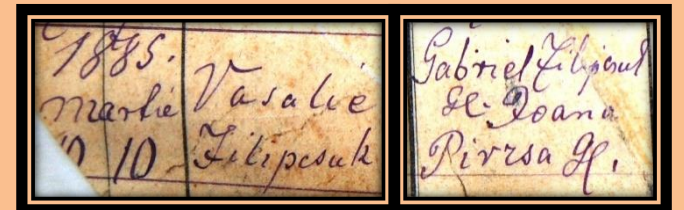 1885.
Martie
10 10
Vasalie
Filipcsuk
Gabriel Filipcsuk
Gl. Ioana
Pirzsa Gl.